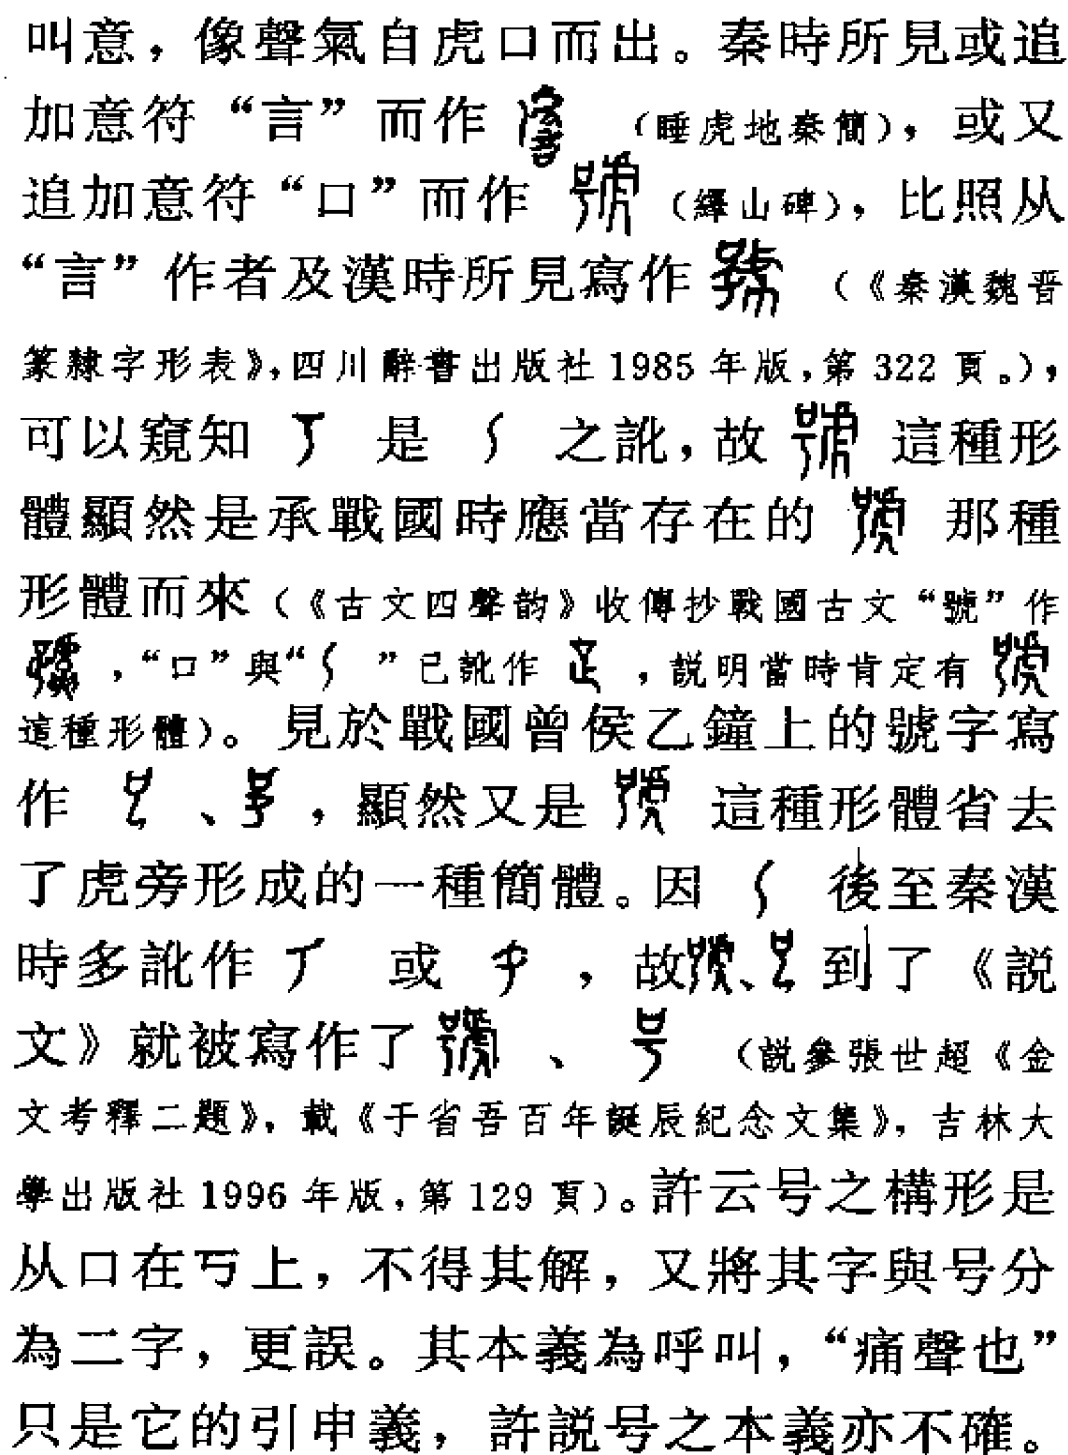 叫意，像聲氣自虎口而出。秦時所見或追
加意符“言”而作（睡虎地秦簡），或又
追加意符“口”而作（繹山碑），比照从
“言”作者及漢時所見寫作（《秦漢魏晋
篆隸字形表》，四川辭書出版社1985年版，第322頁。），
可以窺知是之訛，故這種形
體顯然是承戰國時應當存在的那種
形體而來（《古文四聲韵》收傳抄戰國古文“號”作
，“口”與“”已訛作，説明當時肯定有
這種形體）。見於戰國曾侯乙鐘上的號字寫
作、，顯然又是這種形體省去
了虎旁形成的一種簡體。因後至秦漢
時多訛作或，故、到了《説
文》就被寫作了、（説參張世超《金
文考釋二題》，載《于省吾百年誕辰紀念文集》，吉林大
學出版社1996年版，第129頁）。許云号之構形是
从口在丂上，不得其解，又將其字與号分
為二字，更誤。其本義為呼叫，“痛聲也”
只是它的引申義，許説号之本義亦不確。